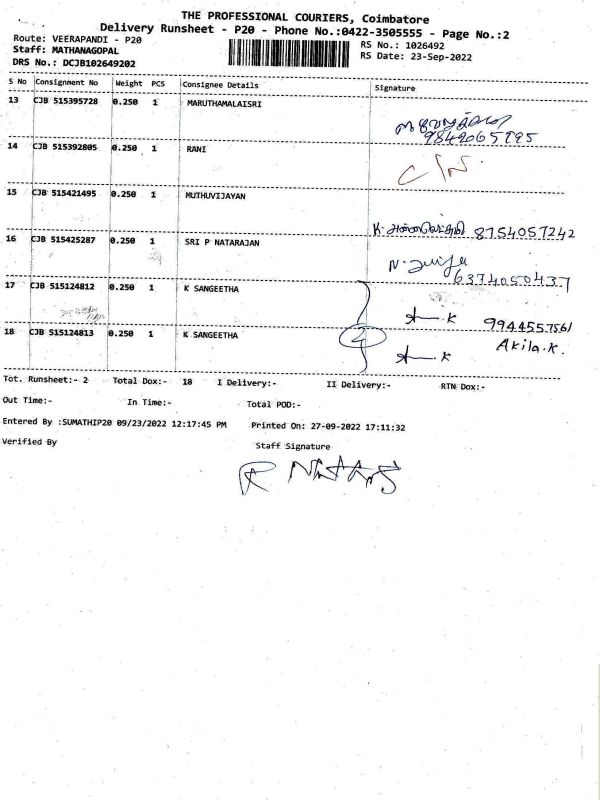 THE PROFESSIONAL COURIERS, Coimbatore
Delivery Runsheet - P20 - Phone No.:0422-3505555 - Page No.:2
Route: VEERAPANDI - P20
RS No.: 1026492
Staff: MATHANAGOPAL
RS Date: 23-Sep-2022
DRS No.: DCJB102649202
S No Consignment No Weight PCS Consignee Details Signature
13 CJB 515395728 0.250 1 MARUTHAMALAISRI
14 CJB 515392805 0.250 1 RANI
15 CJB 515421495 0.250 1 MUTHUVIJAYAN
8754057242
16 CJB 515425287 0.250 1 SRI P NATARAJAN
6374050437
17 CJB 515124812 0.250 1 K SANGEETHA
9944557561
2
Akila.K.
18 CJB 515124813 0.250 1 K SANGEETHA
Tot. Runsheet:- 2 Total Dox:- 18 I Delivery:- II Delivery:- RTN Dox:-
Out Time:- In Time:- Total POD:-
Entered By :SUMATHIP20 09/23/2022 12:17:45 PM Printed On: 27-09-2022 17:11:32
Verified By Staff Signature